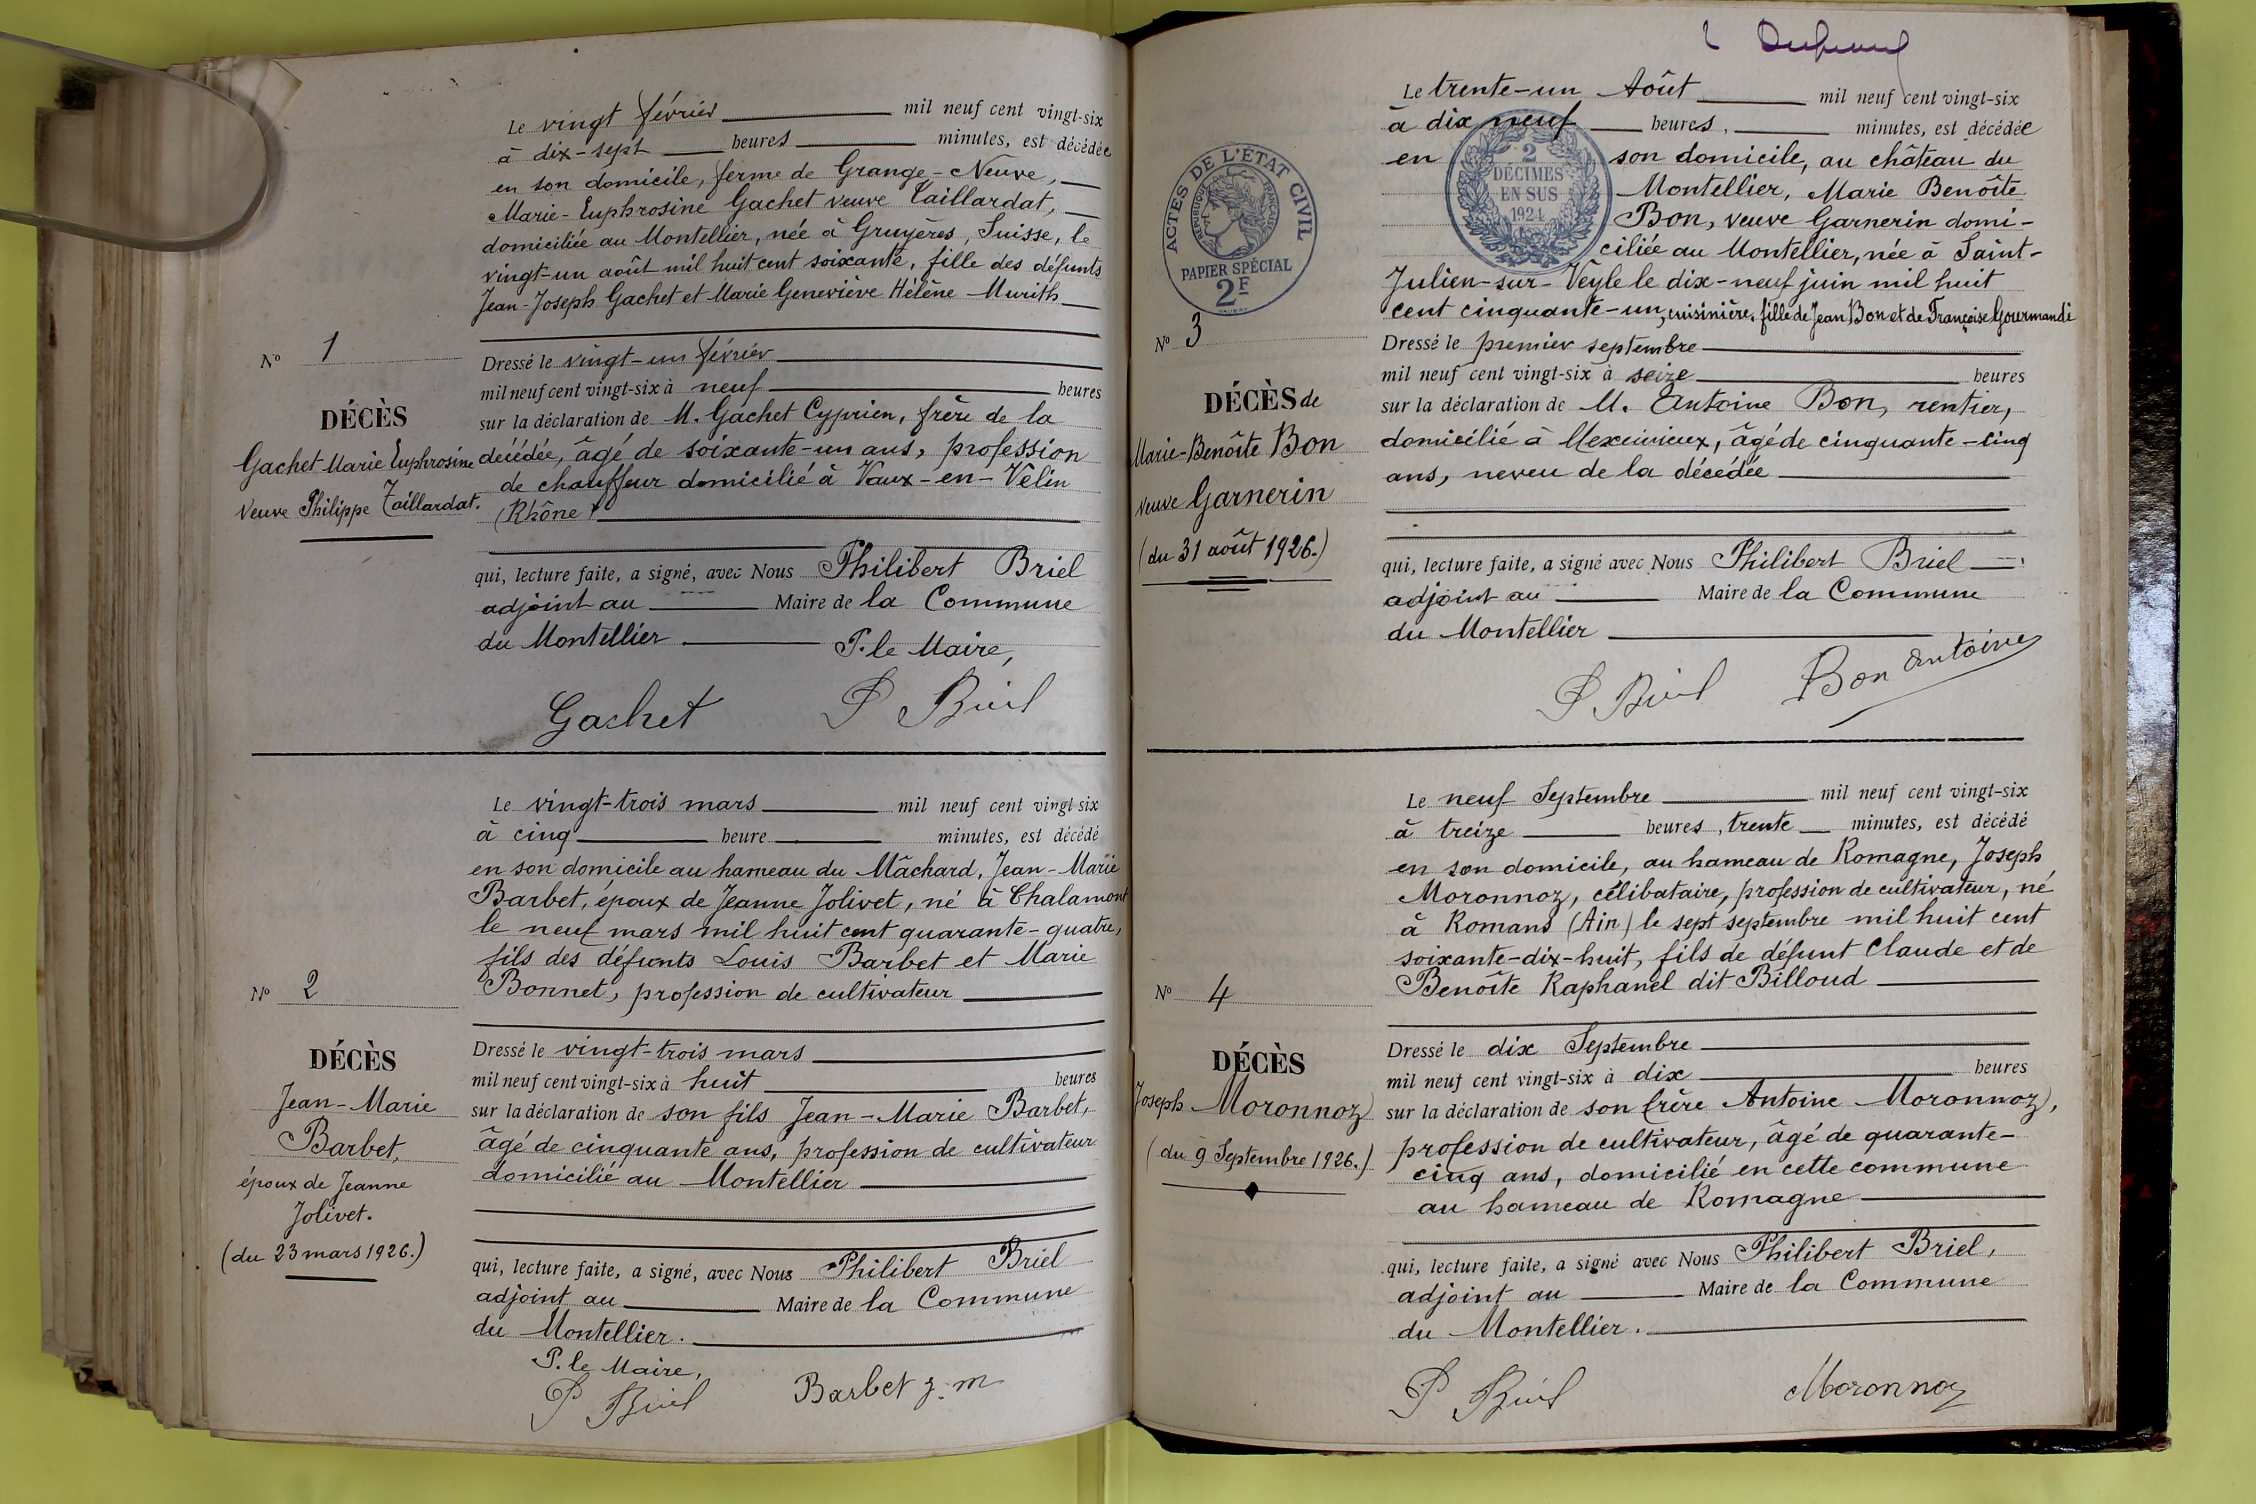 Le vingt février mil neuf cent vingt-six
à dix-sept heures minutes, est décédée
en son domicile, ferme de Grange-Neuve,
Marie-Euphrosine Gachet veuve Taillardat,
domiciliée au Montellier, née à Gruyères, Suisse, le
vingt-un août mil huit cent soixante, fille des défunts
Jean-Joseph Gachet et Marie Geneviève Hélène Murith
N° 1
DÉCÈS
Gachet Marie Euphrosine
veuve Philippe Taillardat.
Dressé le vingt-un février
mil neuf cent vingt-six à neuf heures
sur la déclaration de M. Gachet Cyprien, frère de la
décédée, âgé de soixante-un ans, profession
de chauffeur domicilié à Vaux-en-Velin
(Rhône)
qui, lecture faite, a signé, avec Nous Philibert Briel
adjoint au Maire de la Commune
du Montellier P. le Maire,
Gachet P Briel
Le vingt-trois mars mil neuf cent vingt-six
à cinq heure minutes, est décédé
en son domicile au hameau du Mâchard, Jean-Marie
Barbet, époux de Jeanne Jolivet, né à Chalamont
le neuf mars mil huit cent quarante-quatre,
fils des défunts Louis Barbet et Marie
Bonnet, profession de cultivateur
N° 2
DÉCÈS
Jean-Marie
Barbet,
époux de Jeanne
Jolivet.
(du 23 mars 1926.)
Dressé le vingt-trois mars
mil neuf cent vingt-six à huit heures
sur la déclaration de son fils Jean-Marie Barbet,
âgé de cinquante ans, profession de cultivateur
domicilié au Montellier
qui, lecture faite, a signé, avec Nous Philibert Briel
adjoint au Maire de la Commune
du Montellier.
P. le Maire,
P Briel Barbet J. M
Le trente-un Août mil neuf cent vingt-six
à dix neuf heures, minutes, est décédée
en son domicile, au château du
Montellier, Marie Benoîte
Bon, veuve Garnerin domi-
ciliée au Montellier, née à Saint-
Julien-sur-Veyle le dix-neuf juin mil huit
cent cinquante-un, cuisinière, fille de Jean Bon et de Françoise Gourmandi
ACTES DE L'ÉTAT CIVIL
RÉPUBLIQUE FRANÇAISE
PAPIER SPÉCIAL
2F
2
DÉCIMES
EN SUS
1924
N° 3
DÉCÈS de
Marie-Benoîte Bon
veuve Garnerin
(du 31 août 1926.)
Dressé le premier septembre
mil neuf cent vingt-six à seize heures
sur la déclaration de M. Antoine Bon, rentier,
domicilié à Meximieux, âgé de cinquante-cinq
ans, neveu de la décédée
qui, lecture faite, a signé avec Nous Philibert Briel
adjoint au Maire de la Commune
du Montellier
P Briel Bon Antoine
Le neuf Septembre mil neuf cent vingt-six
à treize heures, trente minutes, est décédé
en son domicile, au hameau de Romagne, Joseph
Moronnoz, célibataire, profession de cultivateur, né
à Romans (Ain) le sept septembre mil huit cent
soixante-dix-huit, fils de défunt Claude et de
Benoîte Raphanel dit Billoud
N° 4
DÉCÈS
Joseph Moronnoz
(du 9 Septembre 1926.)
Dressé le dix Septembre
mil neuf cent vingt-six à dix heures
sur la déclaration de son frère Antoine Moronnoz,
profession de cultivateur, âgé de quarante-
cinq ans, domicilié en cette commune
au hameau de Romagne
qui, lecture faite, a signé avec Nous Philibert Briel,
adjoint au Maire de la Commune
du Montellier.
P Briel Moronnoz